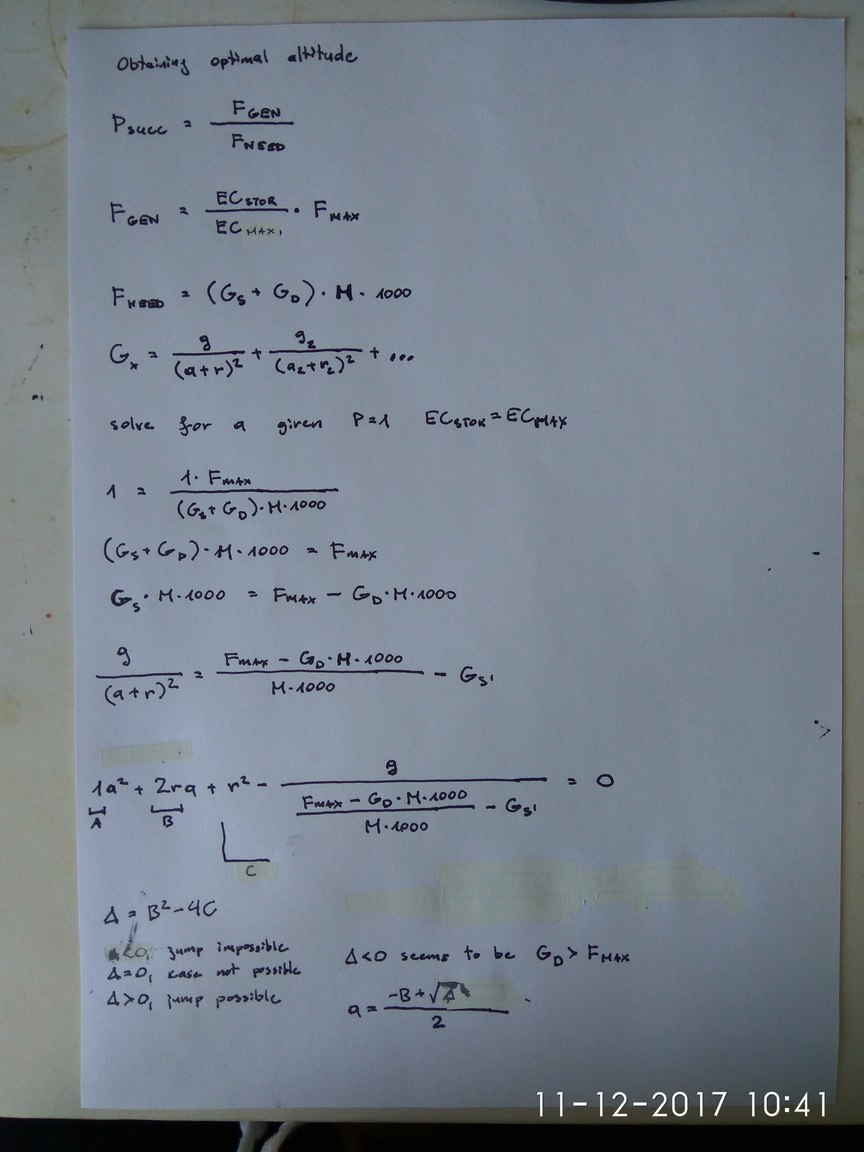 Obtaining optimal altitude
P_SUCC = F_GEN / F_NEED
F_GEN = EC_STOR / EC_MAX, · F_MAX
F_NEED = (G_S + G_D) · M · 1000
G_x = g / (a+r)² + g₂ / (a₂+r₂)² + ...
solve for a given P=1 EC_STOR = EC_MAX
1 = 1 · F_MAX / (G_S + G_D) · M · 1000
(G_S + G_D) · M · 1000 = F_MAX
G_S · M · 1000 = F_MAX − G_D · M · 1000
g / (a+r)² = F_MAX − G_D · M · 1000 / M · 1000 − G_S'
1a² + 2ra + r² − g / (F_MAX − G_D · M · 1000 / M · 1000 − G_S') = 0
A B
C
Δ = B² − 4C
<0, jump impossible
Δ=0, case not possible
Δ>0, jump possible
Δ<0 seems to be G_D > F_MAX
a = −B + √Δ / 2
11-12-2017 10:41